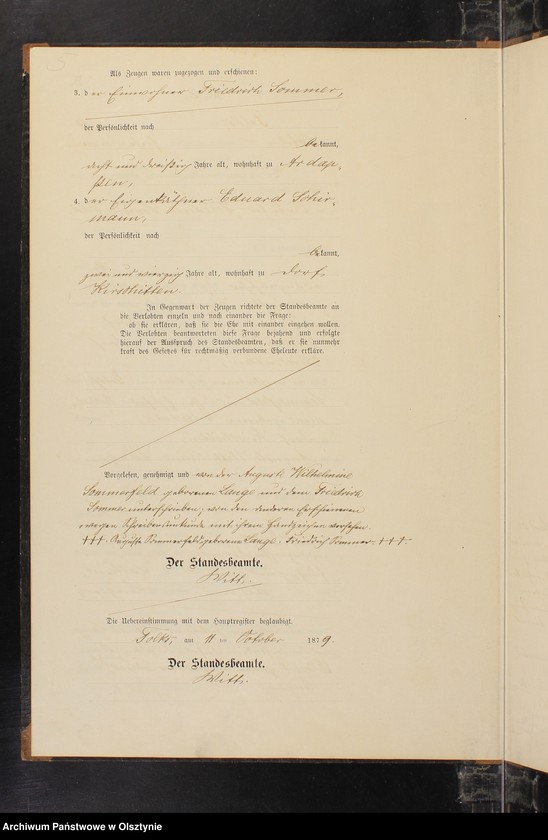 Als Zeugen waren zugezogen und erschienen:
3. der Einwohner Friedrich Sommer,
der Persönlichkeit nach
bekannt,
acht und dreißig Jahre alt, wohnhaft zu Ardap-
pen,
4. der Eigenkäthner Eduard Schir-
mann,
der Persönlichkeit nach
bekannt,
zwei und vierzig Jahre alt, wohnhaft zu Dorf
Kirschitten.
In Gegenwart der Zeugen richtete der Standesbeamte an
die Verlobten einzeln und nach einander die Frage:
ob sie erklären, daß sie die Ehe mit einander eingehen wollen.
Die Verlobten beantworteten diese Frage bejahend und erfolgte
hierauf der Ausspruch des Standesbeamten, daß er sie nunmehr
kraft des Gesetzes für rechtmäßig verbundene Eheleute erkläre.
Vorgelesen, genehmigt und von der Auguste Wilhelmine
Sommerfeld geborenen Lange und dem Friedrich
Sommer unterschrieben, von den anderen Erschienenen
wegen Schreibensunkunde mit ihrem Handzeichen versehen.
+++. Auguste Sommerfeld, geborene Lange. Friedrich Sommer. +++.
Der Standesbeamte.
Witt.
Die Uebereinstimmung mit dem Hauptregister beglaubigt.
am 11 ten October 1879.
Der Standesbeamte.
Witt.
Archiwum Państwowe w Olsztynie